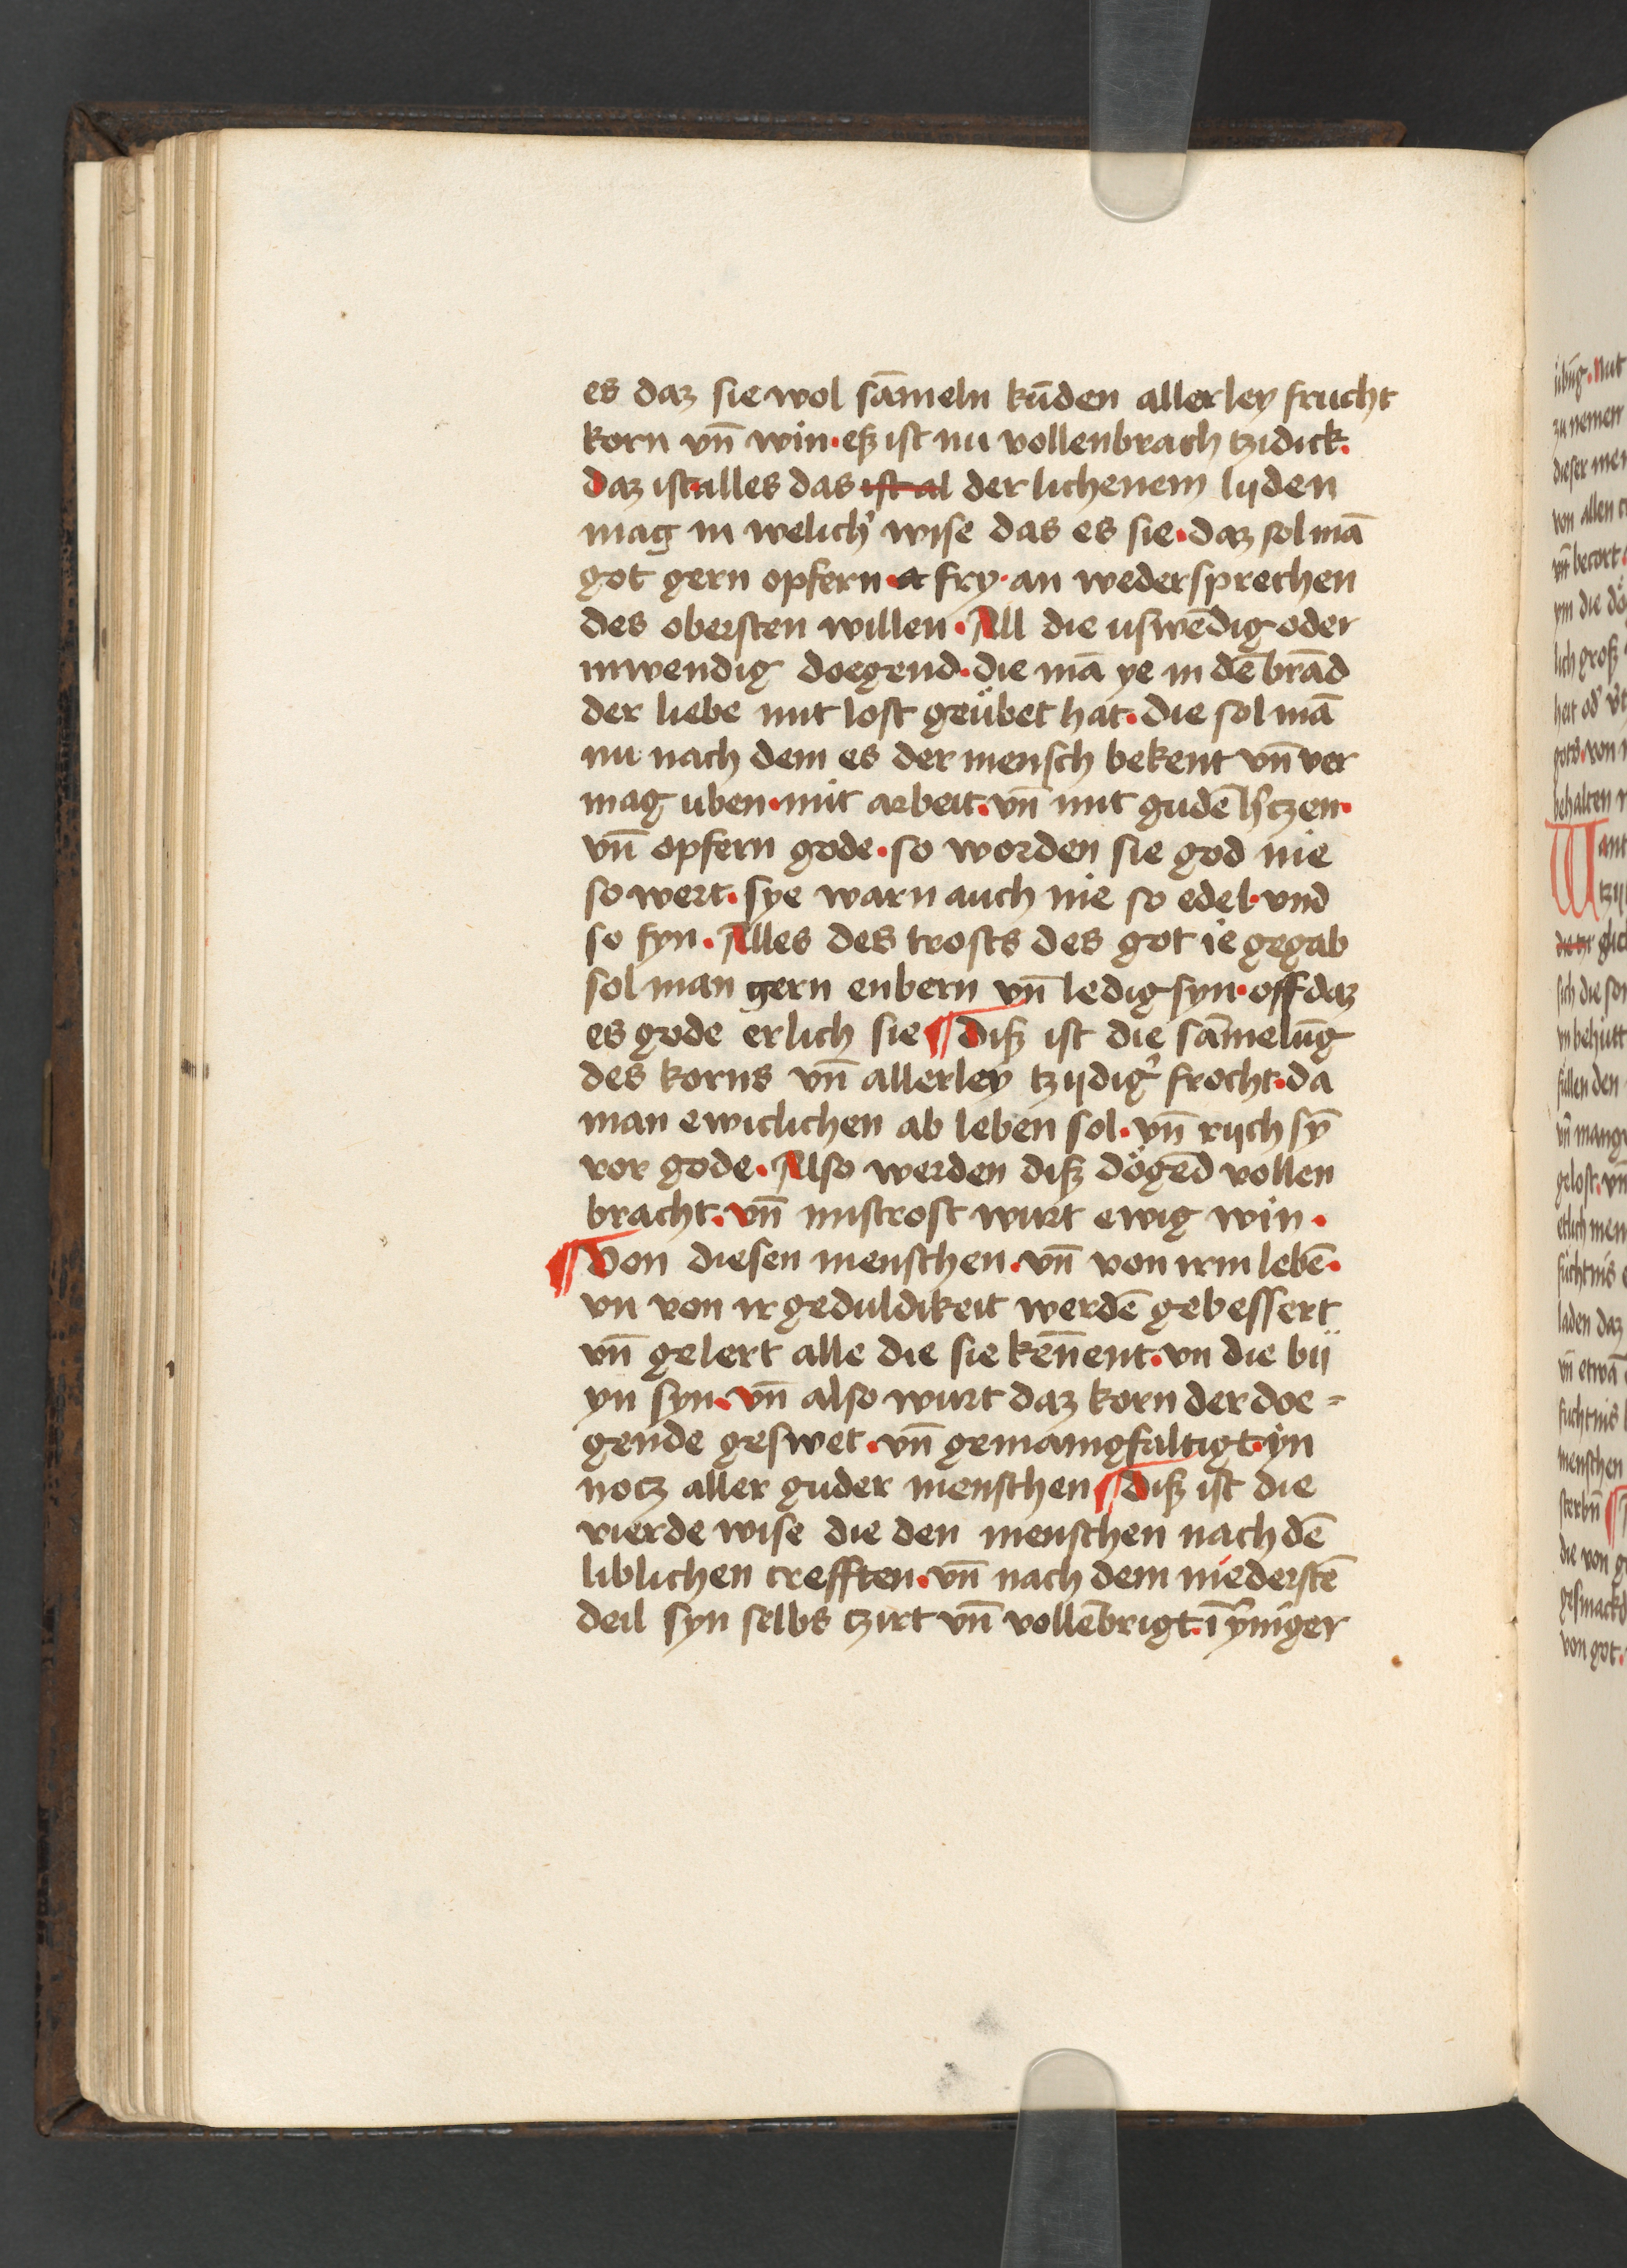 es daz sie wol sāmeln kūden allerley frucht
korn vn̄ win · eß ist nu vollenbrach tzidick.
Daz ist alles das ist al der lichenem lijden
mag in welich' wise das es sie · daz sol mā
got gern opfern · fry · an wedersprechen
des obersten willen · All die uswēdig oder
inwendig doegend · die mā ye in dē brād
der liebe mit lost geübet hat · die sol mā
nu nach dem es der mensch bekent vn̄ ver
mag uben · mit arbeit · vn̄ mit gudē h'tzen ·
vn̄ opfern gode · so worden sie god nie
so wert · sye warn auch nie so edel · vnd
so fyn · Alles des trosts des got ie gegab
sol man gern enbern vn̄ ledig syn · off daz
es gode erlich sie ¶ Diß ist die sāmelūg
des korns vn̄ allerley tzijdig' frocht · da
man ewiclichen ab leben sol · vn̄ rijch sȳ
vor gode · Also werden diß dögēd vollen
bracht · vn̄ mistrost wurt ewig win ·
¶ Von diesen menschen · vn̄ von irm lebē ·
vn von ir geduldikeit werdē gebessert
vn̄ gelert alle die sie kēnent · vn die bij
yn syn · vn̄ also wurt daz korn der doe =
gende geswet · vn̄ gemanigfaltigt · in
nocz aller guder menschen ¶ Diß ist die
vierde wise die den menschen nach dē
liblichen crefften · vn̄ nach dem niederstē
deil syn selbs czirt vn̄ vollēbrigt · ī ȳniger
übūg · Mit
zu nemen
dieser men
von allen
vn̄ becort
ym die
lich groß
heit od'
gots · von
behalten
Want
glich
sich die
behütt
fallen den
vn̄
gelost · vn̄
etlich men
laden daz
vn̄ etwā
menschen
sterbn̄ ¶
die von
gesmackd
von got ·